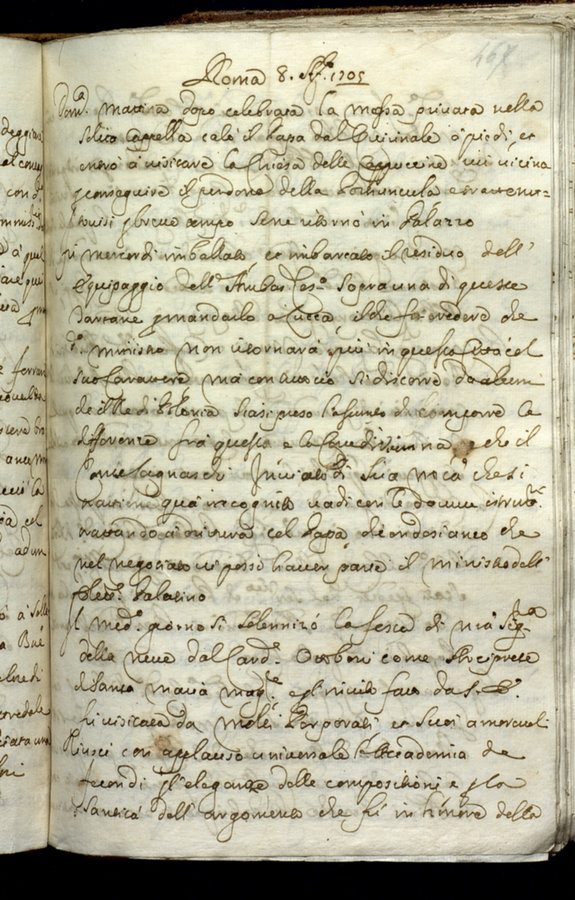 467
Roma 8. Ag.to 1705
Dom.ca mattina dopo celebrata la messa privata nella
solita Cappella calò il Papa dal Quirinale à piedi, et
entrò à visitare la Chiesa delle Cappuccine ivi vicina
p conseguire il perdono della Portiuncula e trattenu=
tovisi p breve tempo se ne ritornò in Palazzo
fù mercordì imballato et imbarcato il residuo dell'
equipaggio dell' Ambas. Ces.o sopra una di queste
Tartane p mandarlo a Lucca, il che fà credere che
d.o ministro non ritornarà più in questa Città col
suo Carattere mà con tutto ciò si discorre da alcuni
che il Rè di Polonia siasi preso l'assunto di comporre le
differenze frà questa e la Corte di Vienna e che il
Conte Lagnasco Inviato di Sua M.tà che si
trattiene quà incognito vadi con le dovute istrutt.
trattando a drittura col Papa credendosi anco che
nel negotiato vi possi haver parte il ministro dell'
Elett. Palatino
Il med.o giorno si solennizò la festa di n'ra Sig.ra
della neve dal Card. Ottoboni come Arciprete
di Santa Maria Magg.re e gl'inviti fatti da S. E.
fù visitata da molti Porporati et suoi amorevoli
Riuscì con applauso universale l'Accademia de
fecondi p l'eleganza delle compositioni e p la
santità dell' argomento che fù in honore della
deggiano
con d
à quel
ferrar
ancor
à Sol